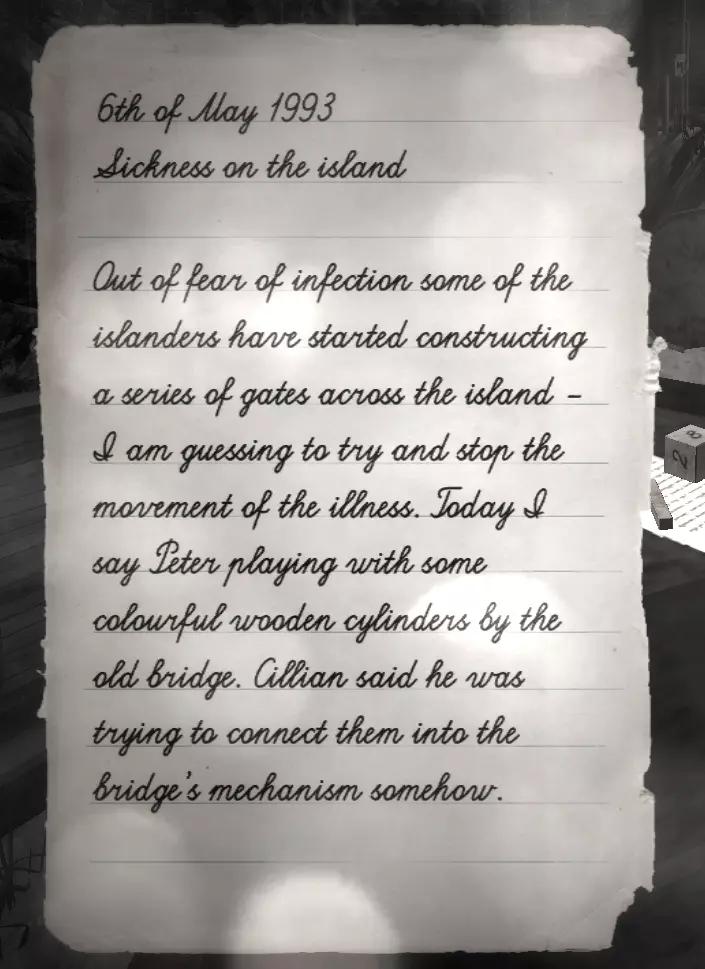 6th of May 1993
Sickness on the island
Out of fear of infection some of the
islanders have started constructing
a series of gates across the island -
I am guessing to try and stop the
movement of the illness. Today I
say Peter playing with some
colourful wooden cylinders by the
old bridge. Cillian said he was
trying to connect them into the
bridge's mechanism somehow.
2
8